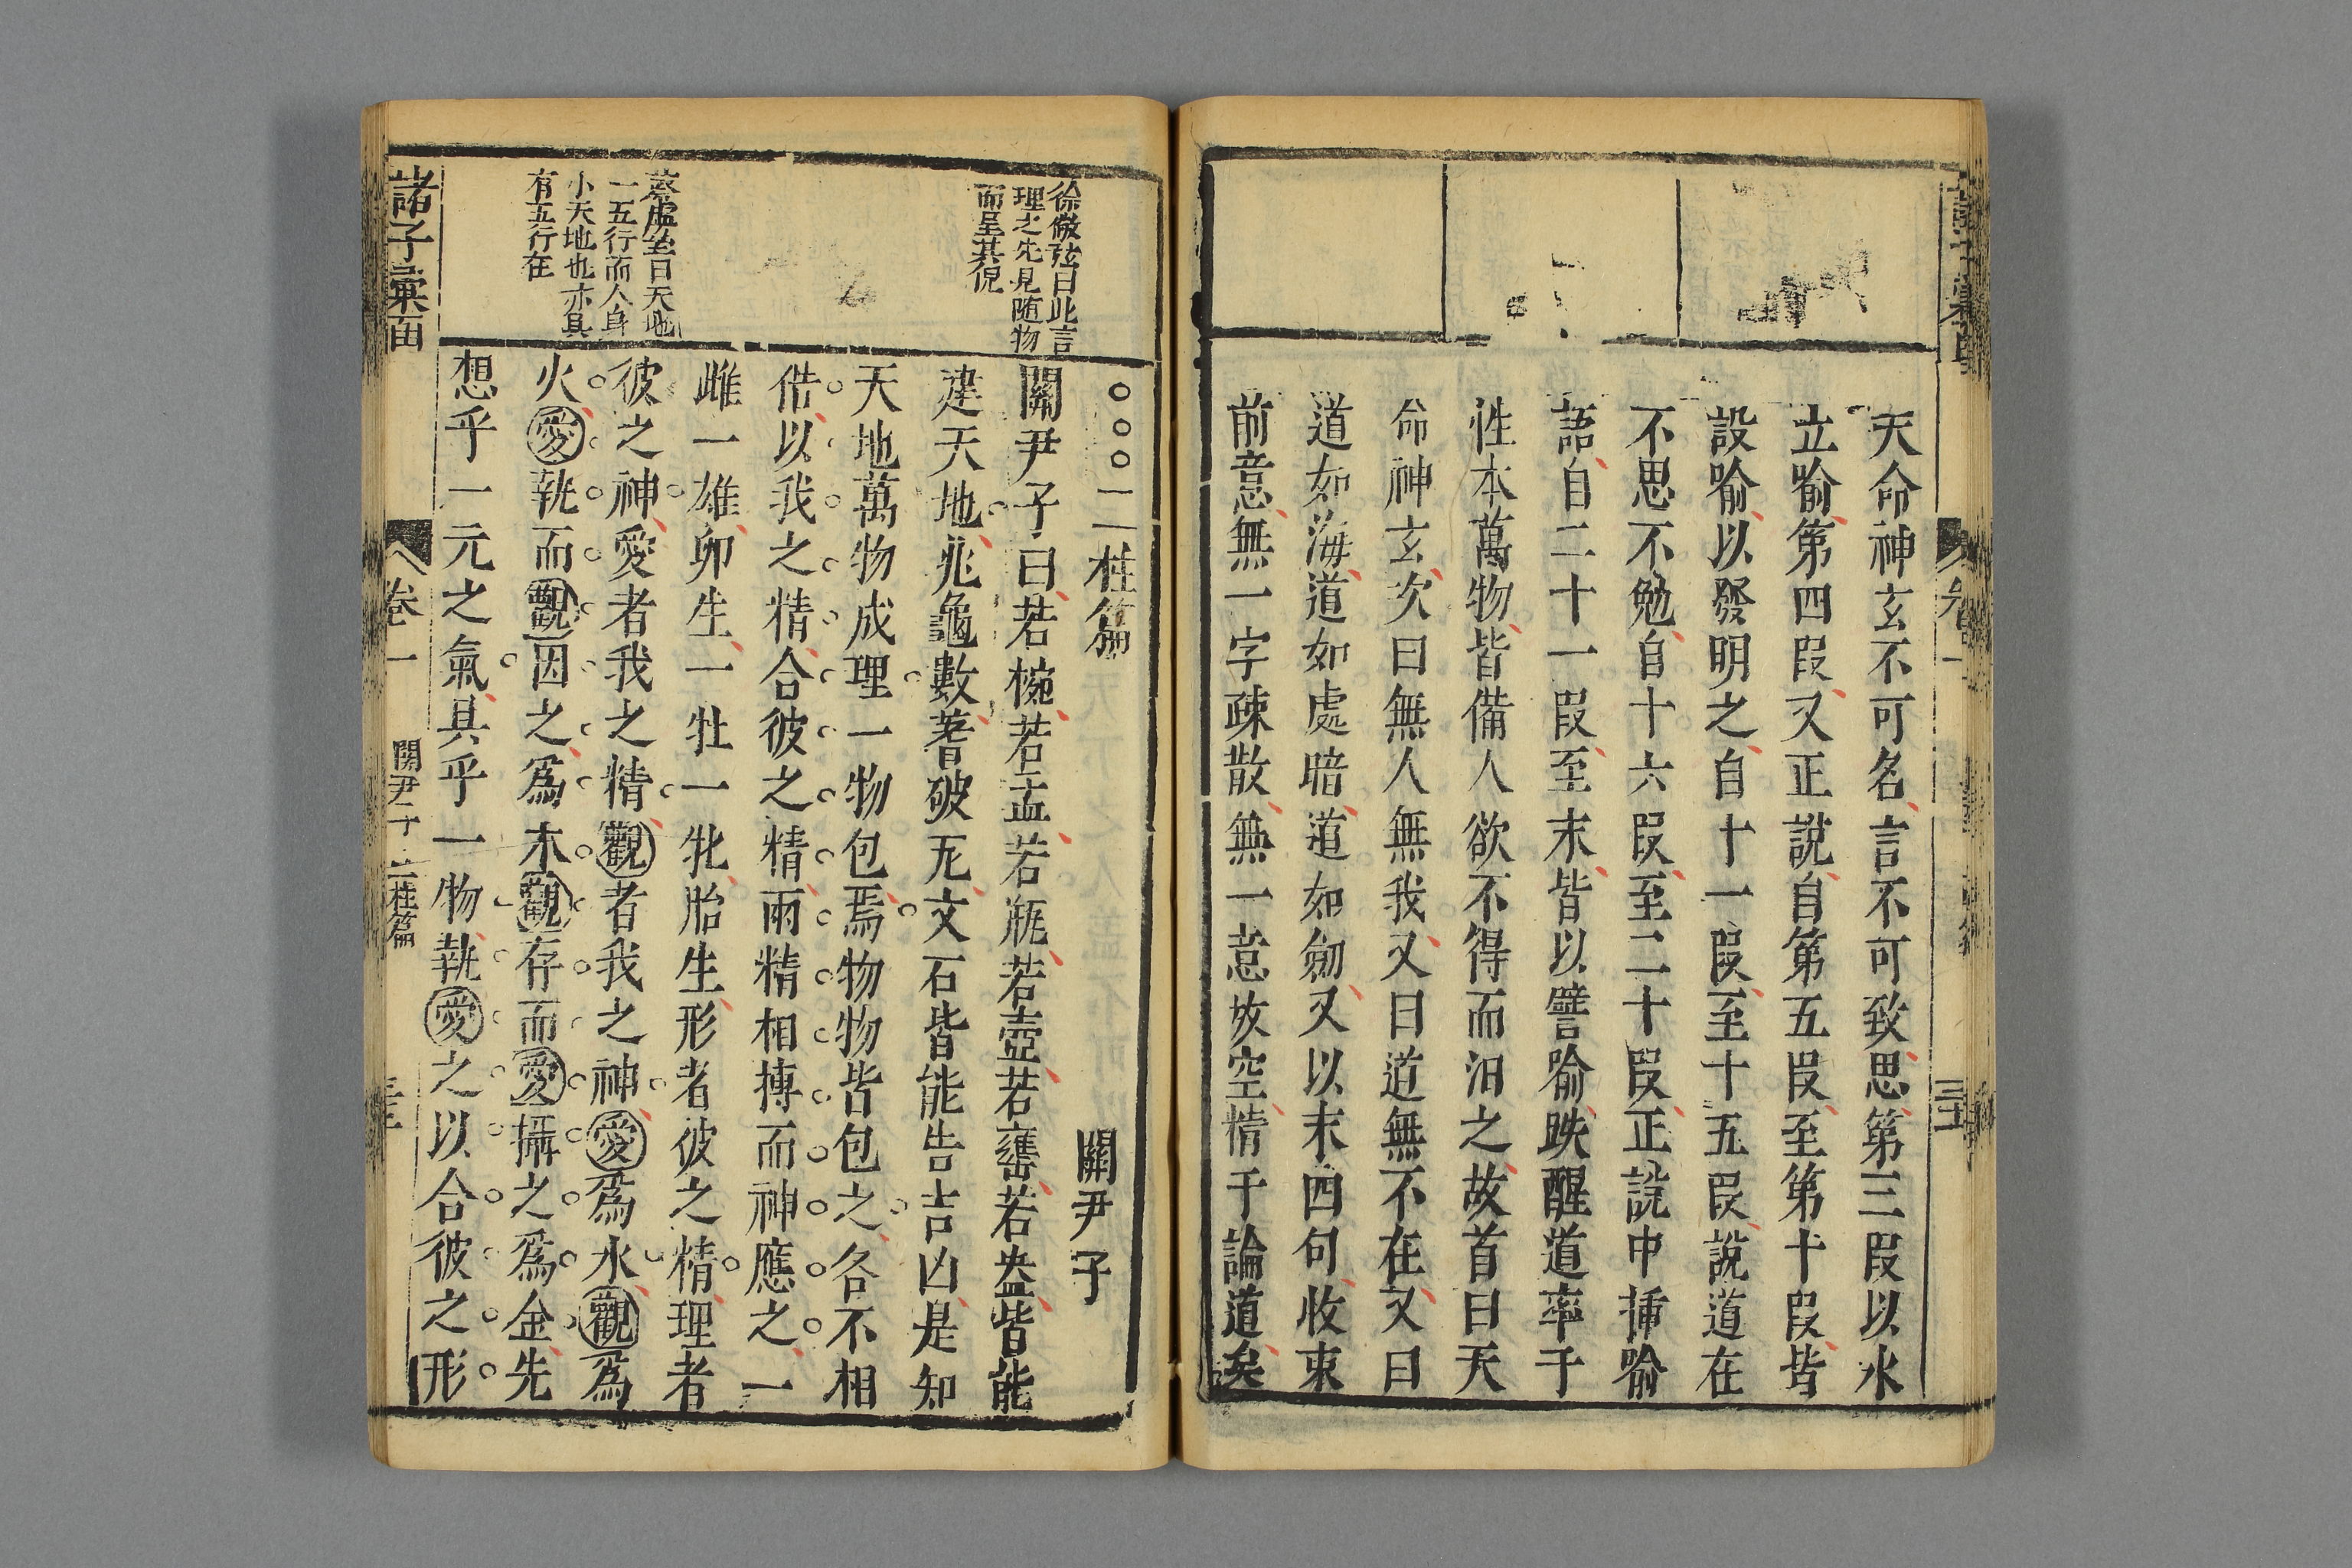 天命神玄不可名言不可致思第三叚以水
立喻第四叚又正說自第五叚至第十叚皆
設喻以發明之自十一叚至十五叚說道在
不思不勉自十六叚至二十叚正說中揷喻
語自二十一叚至末皆以譬喻跌醒道率于
性本萬物皆備人欲不得而汨之故首曰天
命神玄次曰無人無我又曰道無不在又曰
道如海道如處暗道如劒又以末四句收束
前意無一字疎散無一意放空情于論道矣
徐儆弦曰此言
理之先見随物
而呈其倪
蔡虛台曰天地
一五行而人身
小天地也亦具
有五行在
二柱篇
關尹子
關尹子曰若椀若盂若瓶若壺若甕若盎皆能
建天地兆龜數蓍破瓦文石皆能告吉凶是知
天地萬物成理一物包焉物物皆包之各不相
借以我之精合彼之精兩精相摶而神應之一
雌一雄卵生一牡一牝胎生形者彼之精理者
彼之神愛者我之精觀者我之神愛爲水觀爲
火愛執而觀因之爲木觀存而愛攝之爲金先
想乎一元之氣具乎一物執愛之以合彼之形
諸子彙函
卷一
關尹子 二柱篇